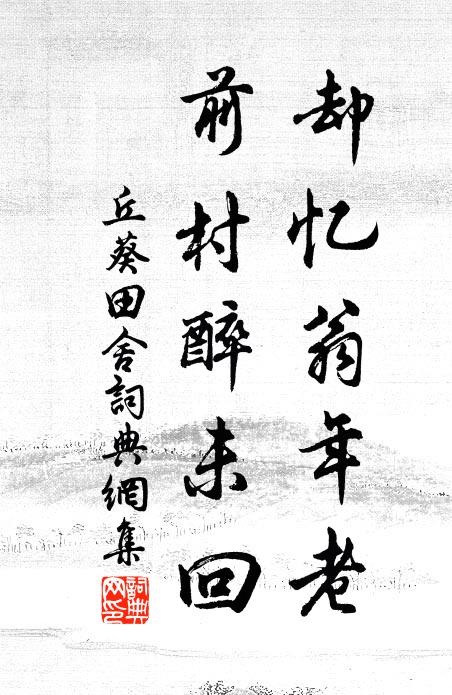 却忆翁年老
前村醉未回
丘葵田舍詞典網集
詞典
网印